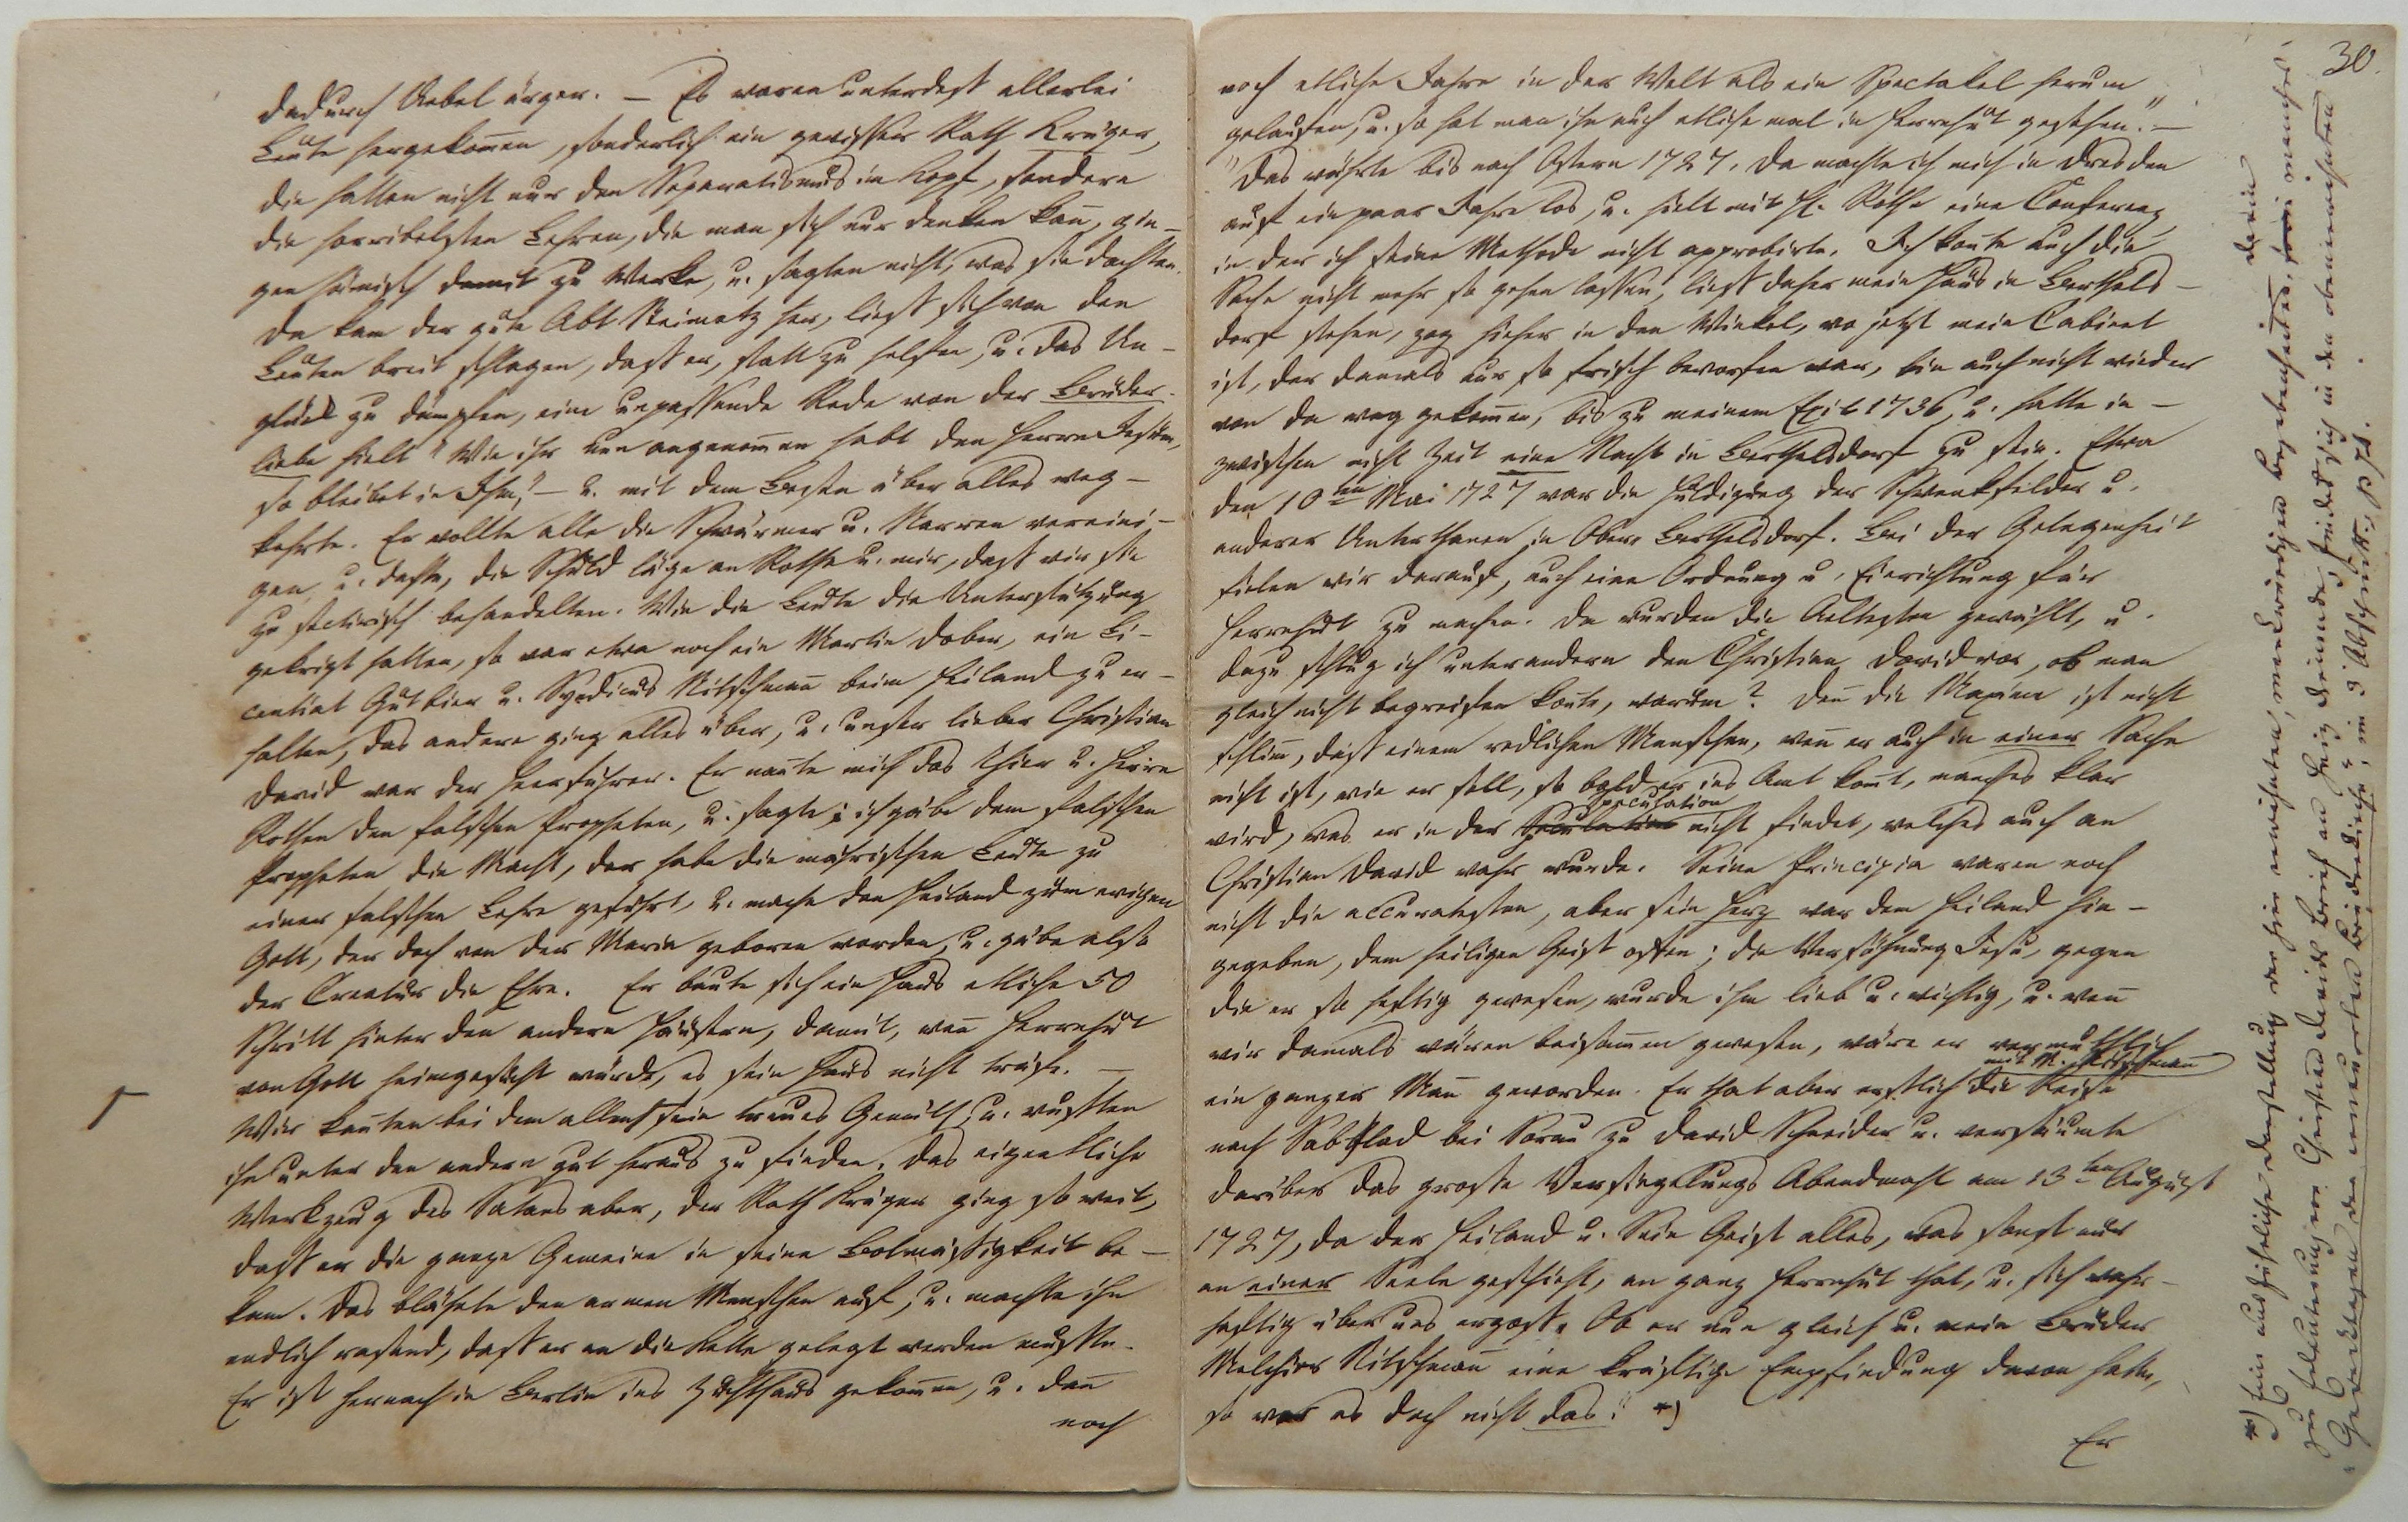 dadurch Uebel ärger. — Es waren unterdeß allerlei
Leute hergekom̄en, sonderlich ein gewisser Rath Krüger,
die hatten nicht nur den Separatismus im Kopf, sondern
die horribelsten Lehren, die man sich nur denken kan̄, gin-
gen hämisch damit zu Werke, u. sagten nicht, was sie dachten.
Da kam der gute Abt Steimetz her, ließ sich von den
Leuten breit schlagen, daß er, statt zu helfen, u. das Un-
glück zu dämpfen, eine unpassende Rede von der Bruder-
liebe hielt "Wie ihr nun angenom̄en habt den Herrn Jesum,
so bleibet in Ihm," — u. mit dem Besen über alles weg-
kehrte. Er wollte alle die Schwärmer u. Narren vereini-
gen, u. dachte, die Schuld läge an Rothe u. mir, daß wir sie
zu sectirisch behandelten. Wie die Leute die Unterstützung
gekrigt hatten, so war etwa noch ein Martin Dober, ein Li-
centiat Gutbier u. Syndicus Nitschman̄ beim Heiland zu er-
halten, das andere ging alles über, u. unser lieber Christian
David war der Heerführer. Er nan̄te mich das Thier u. Herrn
Rothen den falschen Propheten, u. sagte; ich gäbe dem falschen
Propheten die Macht, der habe die mährischen Leute zu
einer falschen Lehre geführt, u. mache den Heiland zum ewigen
Gott, der doch von der Maria geboren worden, u. gäbe also
der Creatur die Ehre. Er baute sich ein Haus etliche 50
Schritt hinter den andern Häusern, damit, wen̄ Herrnhut
von Gott heimgesucht würde, es sein Haus nicht träfe. —
Wir kan̄ten bei dem allen sein treues Gemüth, u. wußten
ihn unter den andern gut heraus zu finden. Das eigentliche
Werkzeug des Satans aber, der Rath Krüger ging so weit,
daß er die ganze Gemeine in seine Botmäßigkeit be-
kam. Das blähete den armen Menschen auf, u. machte ihn
endlich rasend, daß er an die Kette gelegt werden mußte.
Er ist hernach in Berlin ins Zuchthaus gekom̄en, u. dan̄
noch
30.
noch etliche Jahre in der Welt als ein Spectakel herum
gelaufen, u. so hat man ihn auch etliche mal in Herrnhut gesehen." —
"Das währte bis nach Ostern 1727. Da machte ich mich in Dresden
auf ein paar Jahre los, u. hielt mit H. Rothe eine Conferenz,
in der ich seine Methode nicht approbirte. Ich kon̄te auch die
Sache nicht mehr so gehen lassen, ließ daher mein Haus in Berthels-
dorf stehen, zog hieher in den Winkel, wo jetzt mein Cabinet
ist, der damals nur so frisch beworfen war, bin auch nicht wieder
von da weg gekom̄en, bis zu meinem Exil 1736, u. hatte in-
zwischen nicht Zeit eine Nacht in Berthelsdorf zu sein. Etwa
den 10ten Mai 1727 war die Huldigung der Schwenkfelder u.
anderer Unterthanen in Ober Berthelsdorf. Bei der Gelegenheit
fielen wir darauf, auch eine Ordnung u. Einrichtung für
Herrnhut zu machen. Da wurden die Aeltesten gewählt, u.
dazu schlug ich unter andern den Christian David vor, ob man
gleich nicht begreifen kon̄te, warum? Den̄ die Maxime ist nicht
schlim̄, daß einem redlichen Menschen, wen̄ er auch in einer Sache
nicht ist, wie er soll, so bald er ins Amt kom̄t, manches klar
wird, was er in der Speculation nicht findet, welches auch an
Christian David wahr wurde. Seine Principia waren noch
nicht die accuratesten, aber sein Herz war dem Heiland hin-
gegeben, dem heiligen Geist offen; die Versöhnung Jesu, gegen
die er so heftig gewesen, wurde ihm lieb u. wichtig, u. wen̄
wir damals wären beisam̄en gewesen, wäre er vermuthlich
ein ganzer Man̄ geworden. Er that aber erstlich die Reise
mit M. Nitschman̄
nach Sablad bei Sorau zu David Schneider u. versäumte
darüber das große Versiegelungs Abendmahl am 13ten August
1727, da der Heiland u. Sein Geist alles, was sonst nur
an einer Seele geschieht, an ganz Herrnhut that, u. sich wahr-
haftig über uns ergoß. Ob er nun gleich u. mein Bruder
Melchior Nitschman̄ eine kräftige Empfindung davon hatte,
so war es doch nicht das." *)
Er
*) Eine ausführliche Darstellung der hier erwähnten, merkwürdigen Begebenheiten, mancher
zur Erläuterung von Christian Davids Brief an seine Freunde, findet sich in den obenerwähnten
Gedenktagen der erneuerten Brüderkirche, im 3. Abschnitt.